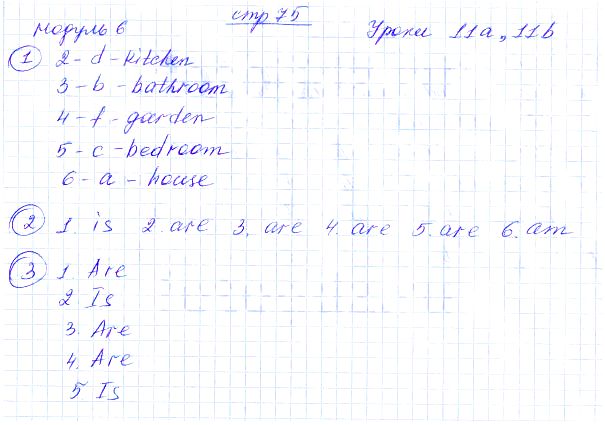 стр 75
Модуль 6 Уроки 11a, 11b
1 2 - d - kitchen
3 - b - bathroom
4 - f - garden
5 - c - bedroom
6 - a - house
2 1. is 2. are 3. are 4. are 5. are 6. am
3 1. Are
2. Is
3. Are
4. Are
5 Is